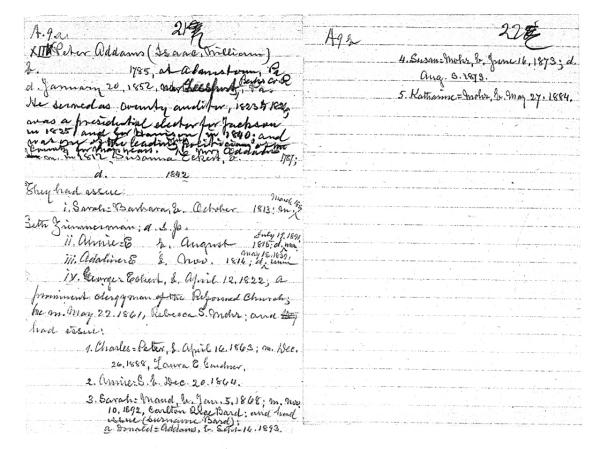 A.92
21
XIII Peter Addams (Isaac, William)
b. 1785, at Adamstown, Pa
d. January 20, 1852, Berks Co
He served as county auditor, 1823
was a presidential elector for Jackson
in 1825 and for Harrison in 1840; and
was one of the leading politicians of the
county for many years. He
m. in 1812 Susanna Eckert, b. 1781;
d. 1842
They had issue:
i. Sarah=Barbara, b. October 1813; m.
Seth Zimmerman; d. s. p.
July 17, 1891
ii. Annie=E b. August 1815; d.
May 18, 1839,
iii. Adaline=E b. Nov. 1816; d.
iv. George=Eckert, b. April 12, 1822; a
prominent clergyman of the Reformed Church;
he m. May 22, 1861, Rebecca S. Mohr; and
had issue:
1. Charles=Peter, b. April 16, 1863; m. Dec.
26, 1888, Laura E. Gardner.
2. Annie=S. b. Dec. 20, 1864.
3. Sarah=Maud, b. Jan. 5, 1868; m. Nov.
10, 1892, Carlton Bard; and had
issue (surname Bard);
a Donald=Addams, b. Sept. 16, 1893.
A92
22
4. Susan=Mohr, b. June 16, 1873; d.
Aug. 3, 1873.
5. Katharine=Mohr, b. May 27, 1884.